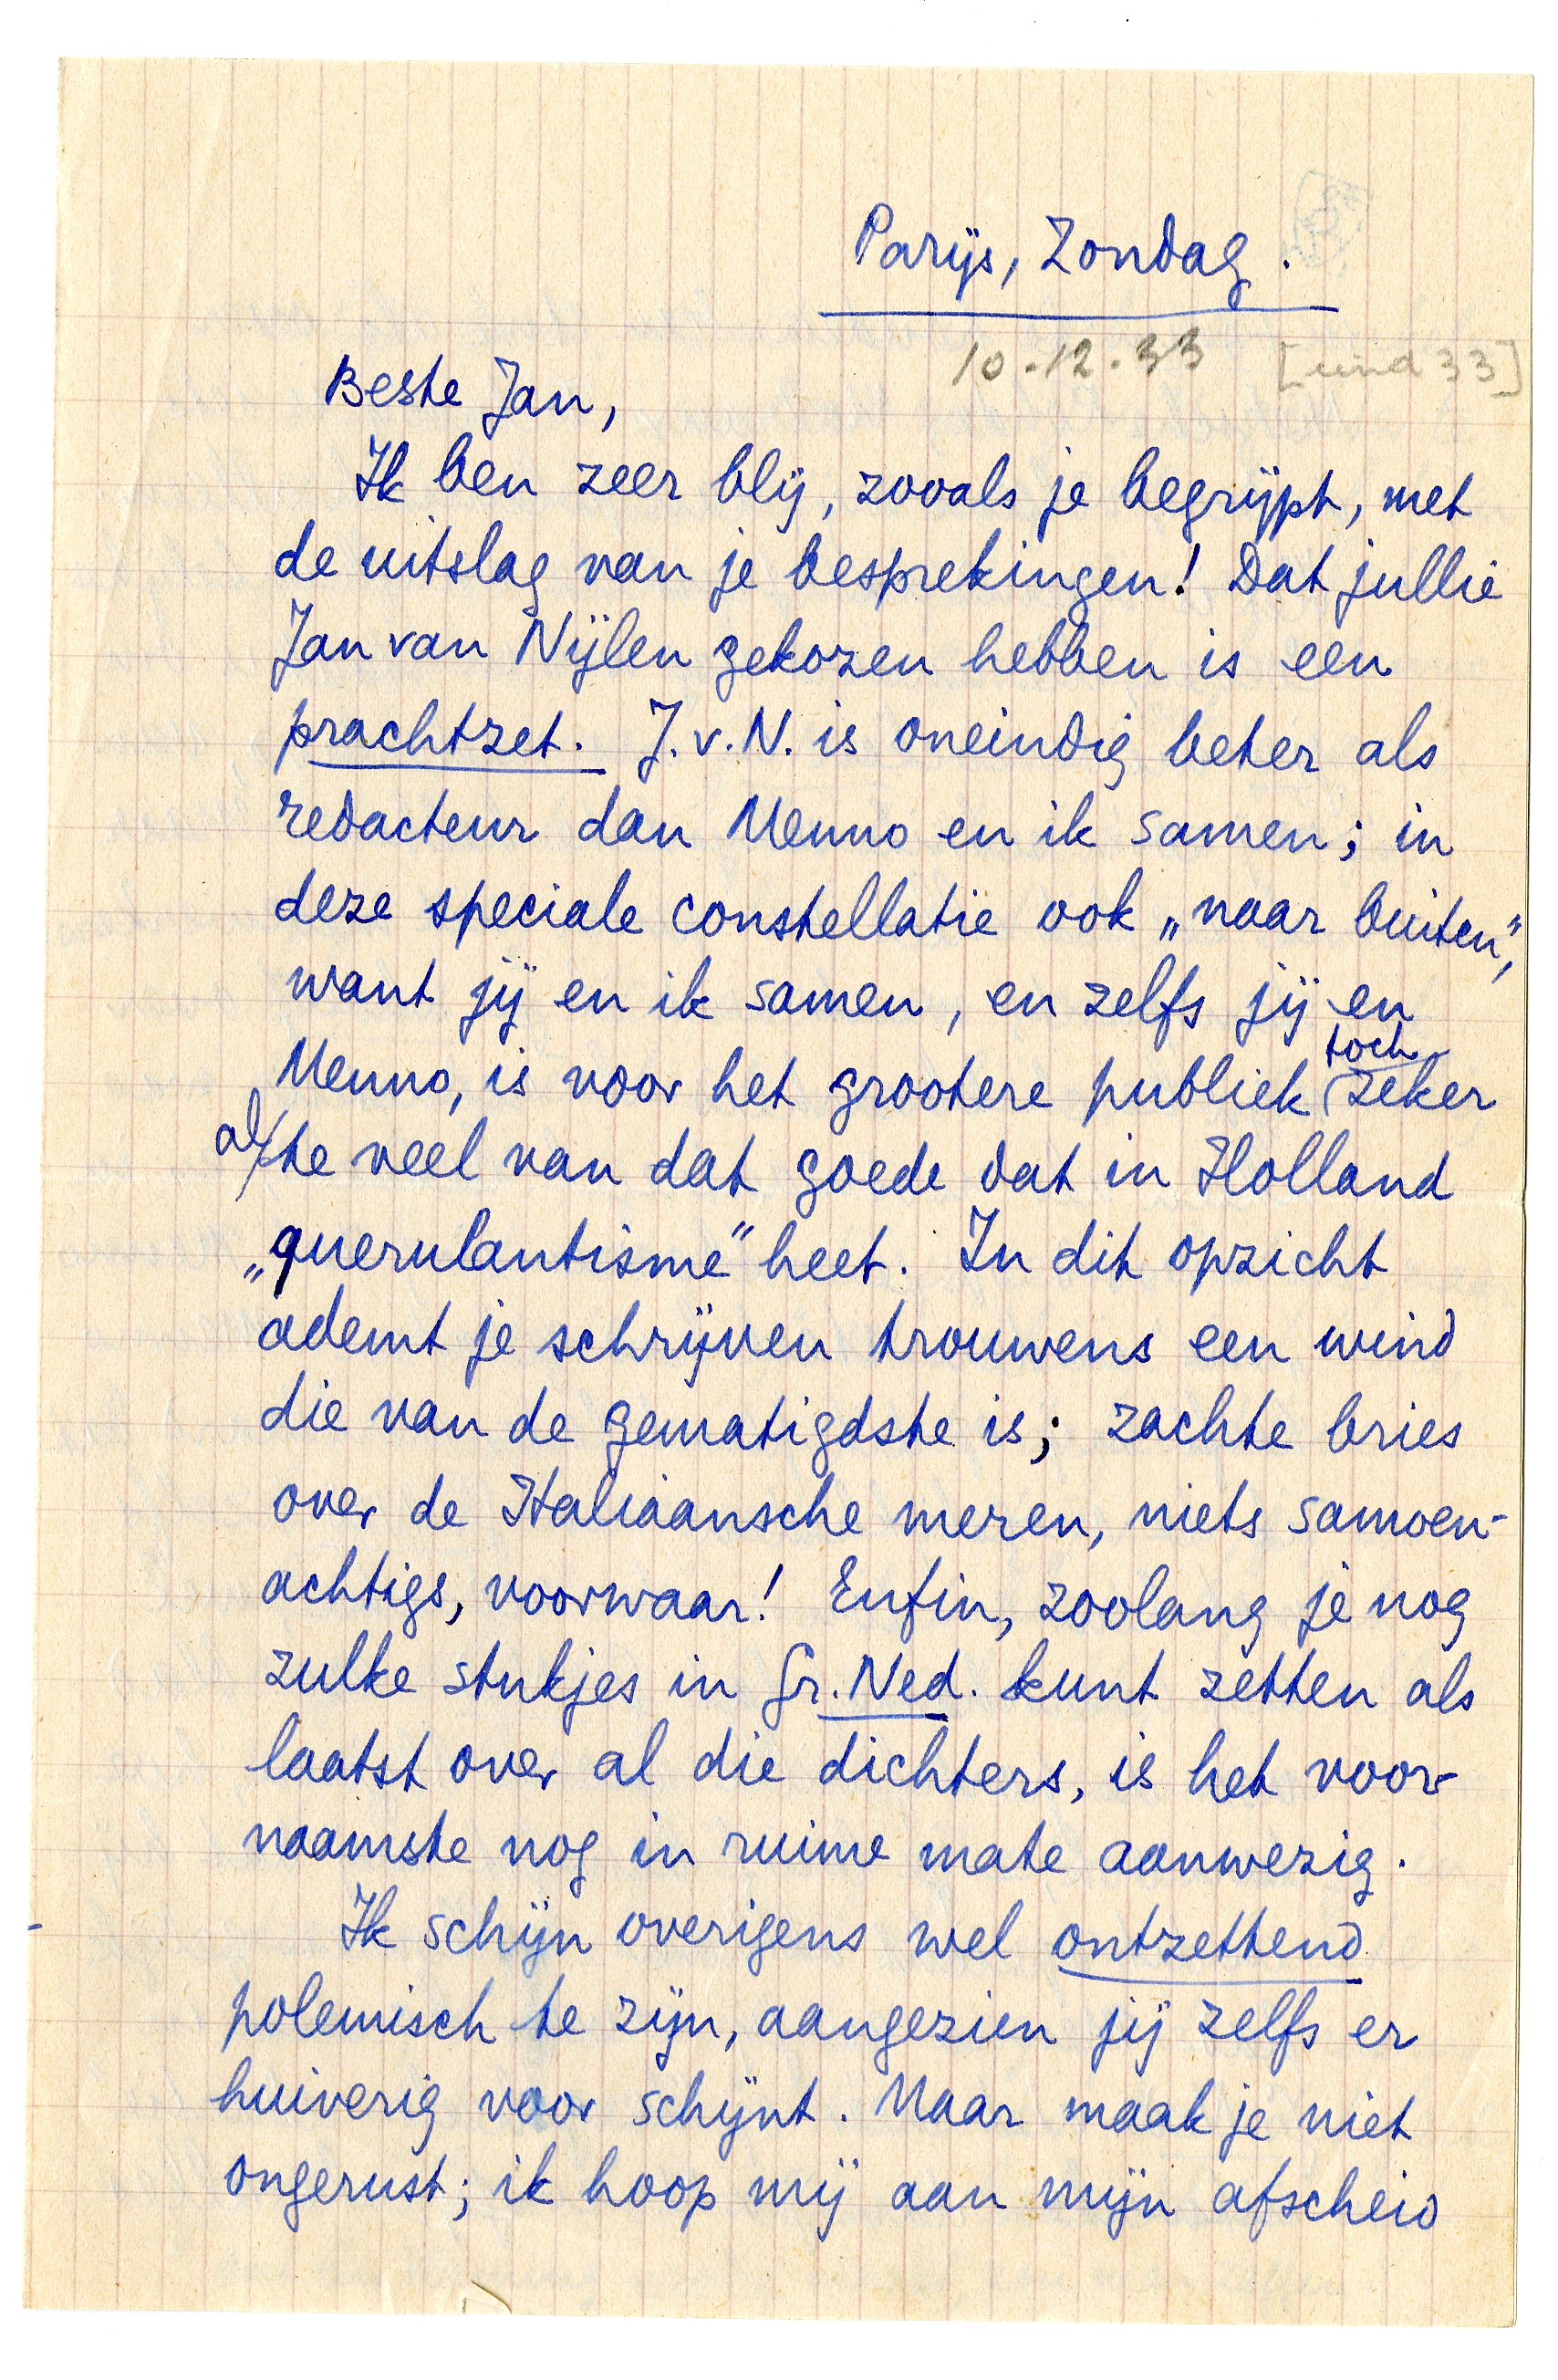 Parijs, Zondag.
10.12.33 [eind 33]
Beste Jan,
Ik ben zeer blij, zooals je begrijpt, met
de uitslag van je besprekingen! Dat jullie
Jan van Nijlen gekozen hebben is een
prachtzet. J.v.N. is oneindig beter als
redacteur dan Menno en ik samen; in
deze speciale constellatie ook „naar buiten”,
want jij en ik samen, en zelfs jij en
Menno, is voor het grootere publiek toch zeker
al te veel van dat goede dat in Holland
„querulantisme” heet. In dit opzicht
ademt je schrijven trouwens een wind
die van de gematigdste is; zachte bries
over de Italiaansche meren, niets samoen-
achtigs, voorwaar! Enfin, zoolang je nog
zulke stukjes in Gr. Ned. kunt zetten als
laatst over al die dichters, is het voor-
naamste nog in ruime mate aanwezig.
Ik schijn overigens wel ontzettend
polemisch te zijn, aangezien jij zelfs er
huiverig voor schijnt. Maar maak je niet
ongerust; ik hoop mij aan mijn afscheid